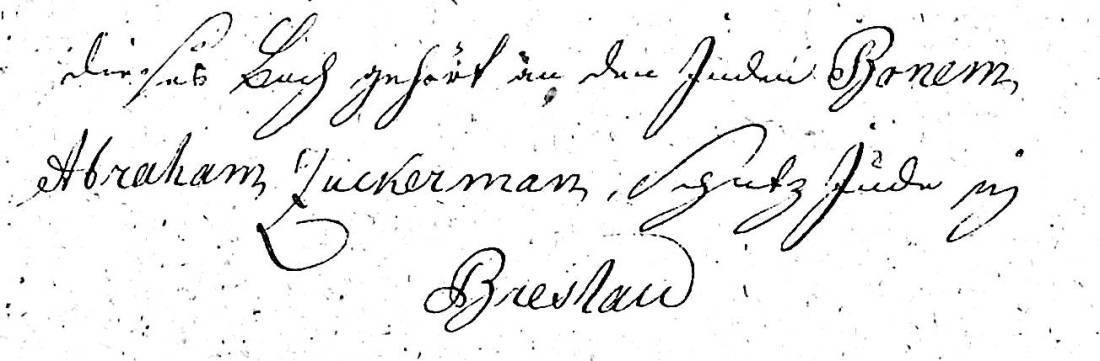 dieses Buch gehört an den Juden Bonem
Abraham Zuckerman, Schutz Jude in
Breslau